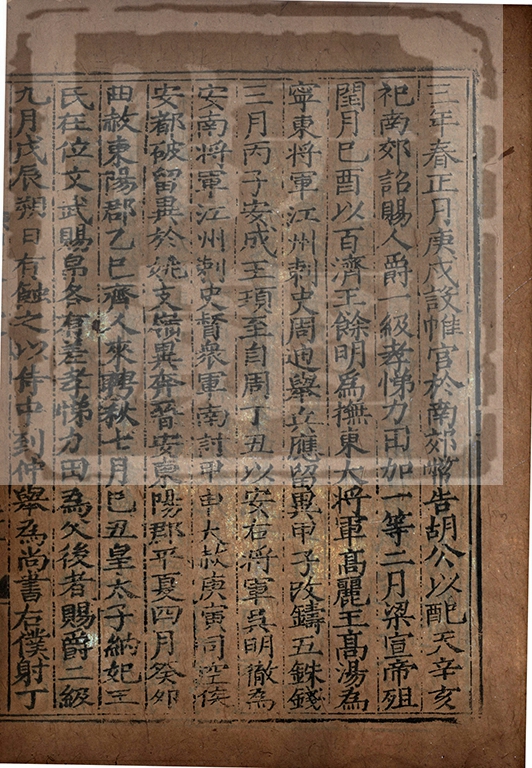 三年春正月庚戌設帷宮於南郊幣告胡公以配天辛亥
祀南郊詔賜人爵一級孝悌力田加一等二月梁宣帝殂
閏月巳酉以百濟王餘明為撫東大將軍高麗王高湯為
寧東將軍江州刺史周迪舉兵應留異甲子改鑄五銖錢
三月丙子安成王頊至自周丁丑以安右將軍吳明徹為
安南將軍江州刺史督衆軍南討甲申大赦庚寅司空侯
安都破留異於姚支嶺異奔晉安東陽郡平夏四月癸卯
曲赦東陽郡乙巳齊人來聘秋七月巳丑皇太子納妃王
氏在位文武賜帛各有差孝悌力田為父後者賜爵二級
九月戊辰朔日有蝕之以侍中到仲舉為尚書右僕射丁